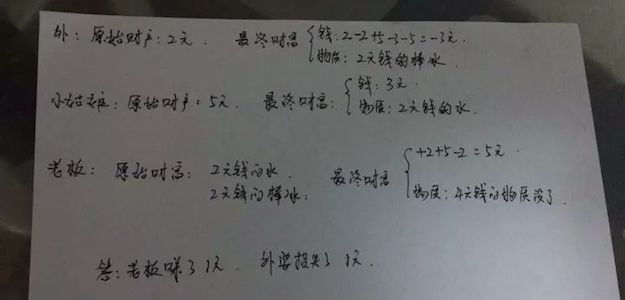 外: 原始财产: 2元. 最终财富 钱: 2-2+5-3-5=-3元.
物质: 2元钱的棒冰.
小姑娘: 原始财产: 5元. 最终财富: 钱: 3元.
物质: 2元钱的水.
老板: 原始财富: 2元钱的水 最终财富 +2+5-2=5元.
2元钱的棒冰. 物质: 4元钱的物质没了.
答: 老板赚了1元. 外婆损失了1元.